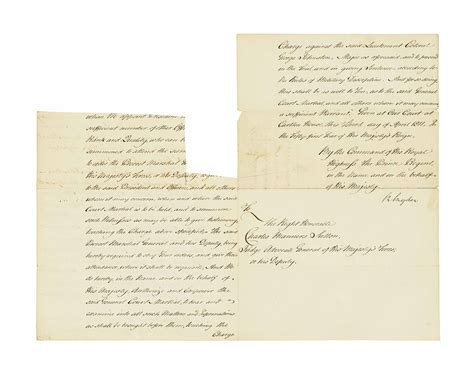 when We appoint
sufficient number of other
Rank and Quality, who can
summoned to attend the
to order the Provost Marshal
His Majesty's Forces, or His Deputy,
to the said President and Officers, and all others
that it may concern, when and where the said
Court Martial is to be held, and to summon
such Witnesses as may be able to give testimony
touching the Charge above specified; the said
Provost Marshal General and his Deputy, being
hereby required to obey Your orders, and give their
attendance when it shall be requisite. And We
do hereby, in the name and on the behalf of
His Majesty, Authorize and Empower the
said General Court Martial, to hear and
examine into all such Matters and Informations
as shall be brought before them, touching the
Charge
Charge against the said Lieutenant Colonel
George Johnston, Major as aforesaid, and to proceed
in the Trial, and in giving Sentence, according to
the Rules of Military Discipline. And for so doing
this shall be, as well to You, as to the said General
Court Martial, and all others whom it may concern
a sufficient Warrant. Given at Our Court at
Carlton House, this day of April 1811. In
the Fifty first Year of His Majesty's Reign.
By the Command of His Royal
Highness The Prince Regent,
in the name, and on the behalf
of His Majesty.
R. Ryder
To
The Right Honorable
Charles Manners Sutton,
Judge Advocate General of His Majesty's Forces,
or his Deputy.